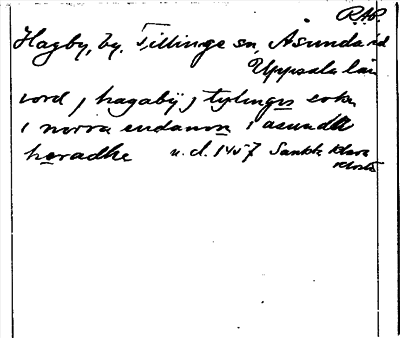 RAP.
Hagby, by. Tillinge sn, Åsunda hd
Uppsala län
iord j hagaby j tylingis sokn
i norra endanom i asunda
hæradhe u. d. 1457 Sankta Klara
Kloster